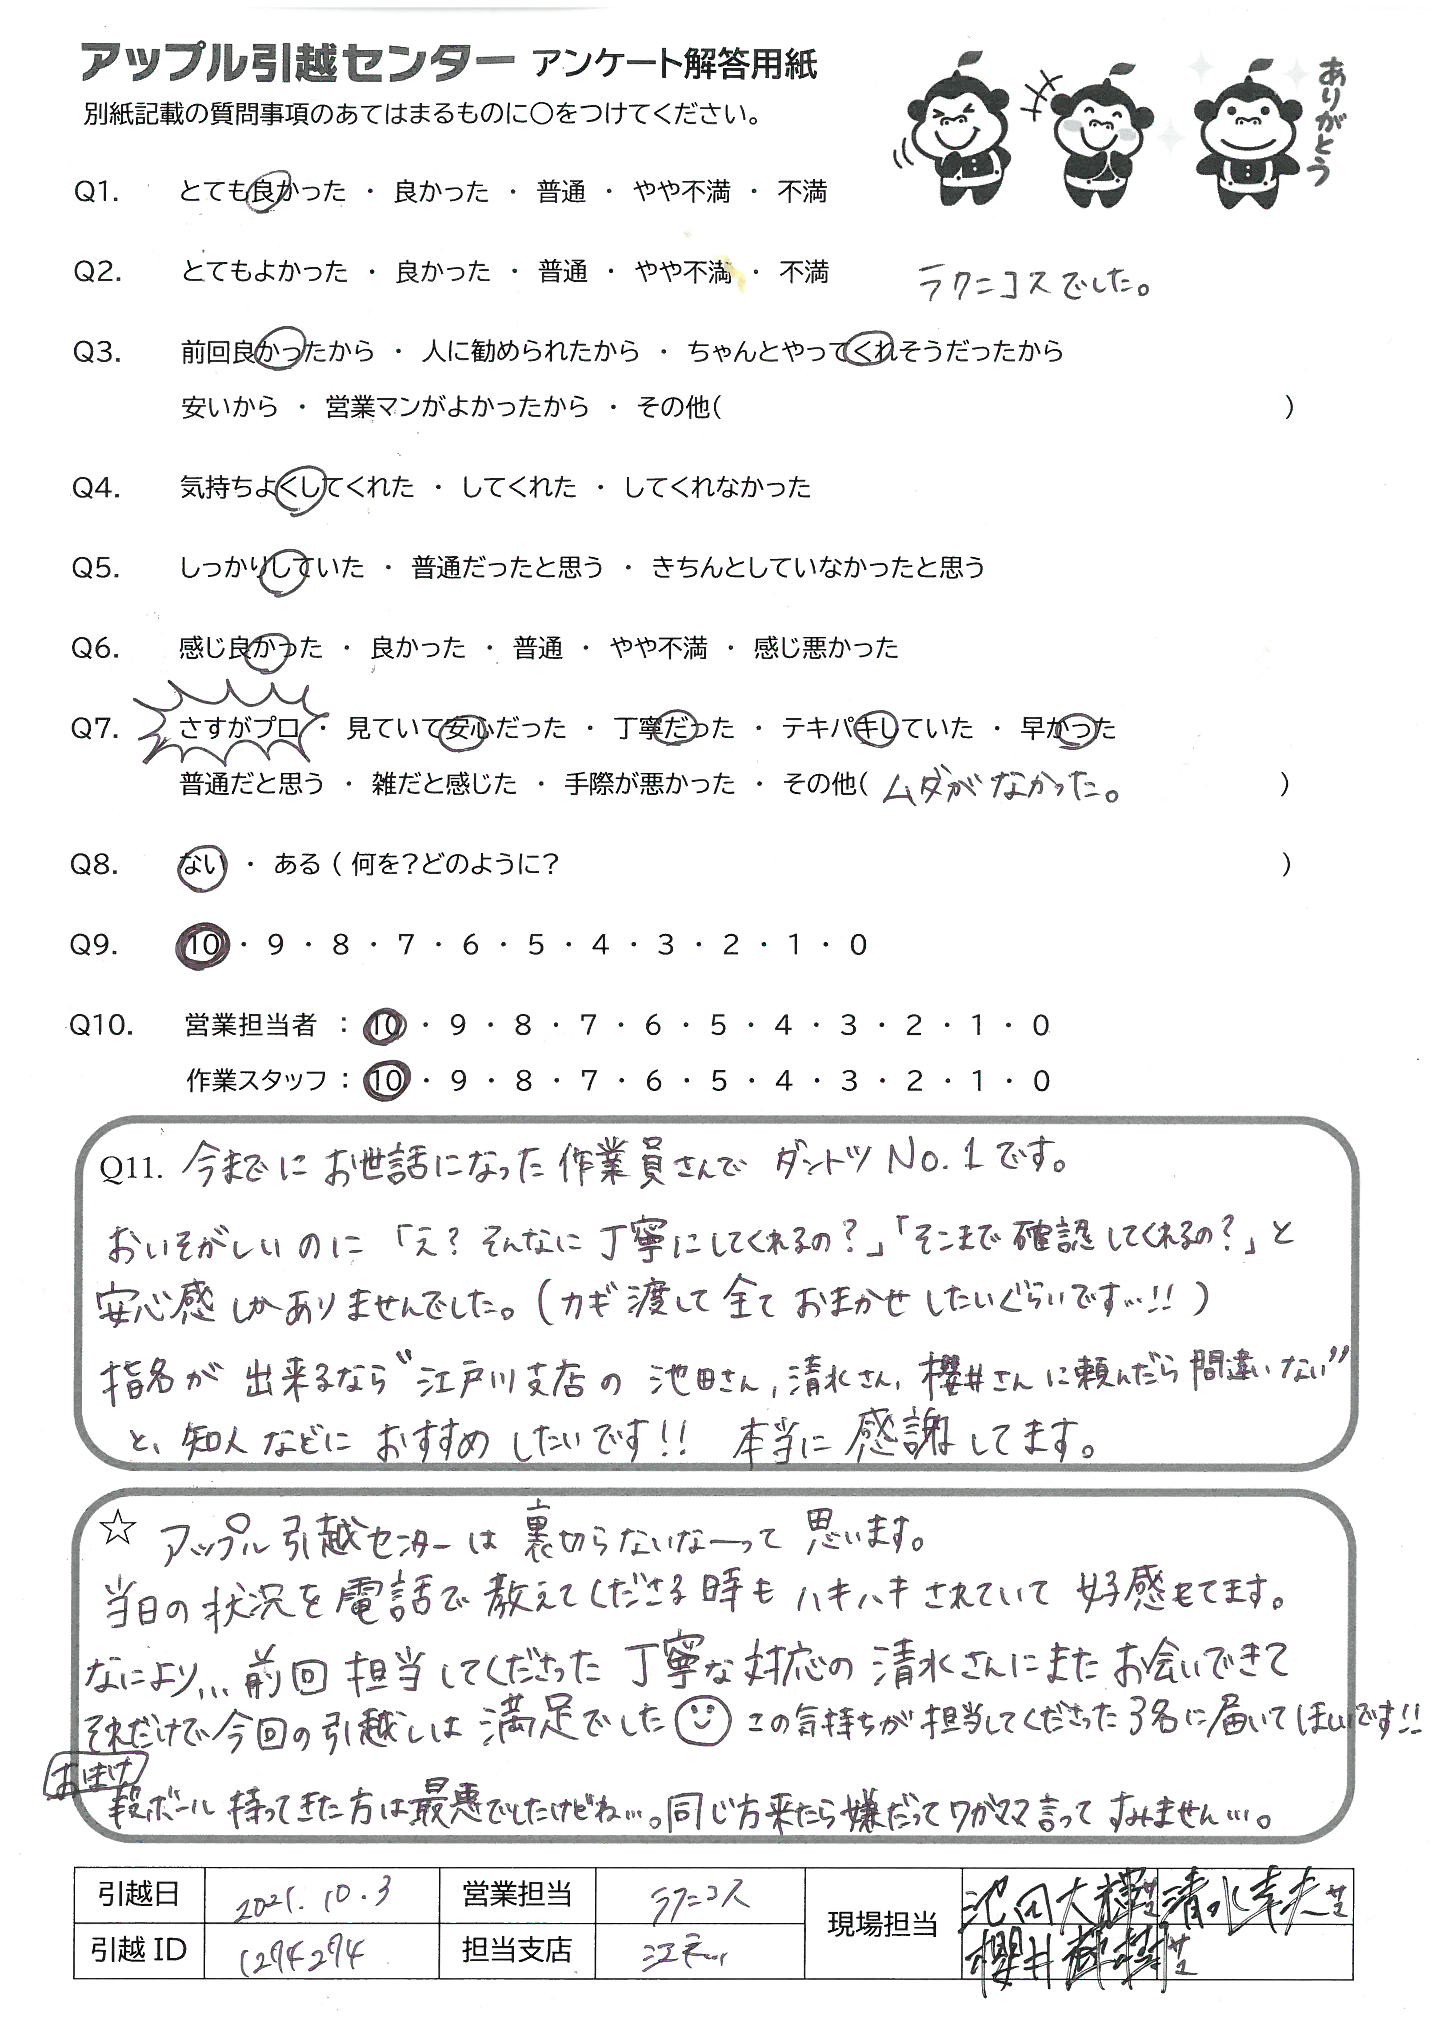 アップル引越センター アンケート解答用紙
別紙記載の質問事項のあてはまるものに〇をつけてください。
ありがとう
Q1. とても良かった ・ 良かった ・ 普通 ・ やや不満 ・ 不満
Q2. とてもよかった ・ 良かった ・ 普通 ・ やや不満 ・ 不満 ラクニコスでした。
Q3. 前回良かったから ・ 人に勧められたから ・ ちゃんとやってくれそうだったから
安いから ・ 営業マンがよかったから ・ その他( )
Q4. 気持ちよくしてくれた ・ してくれた ・ してくれなかった
Q5. しっかりしていた ・ 普通だったと思う ・ きちんとしていなかったと思う
Q6. 感じ良かった ・ 良かった ・ 普通 ・ やや不満 ・ 感じ悪かった
Q7. さすがプロ ・ 見ていて安心だった ・ 丁寧だった ・ テキパキしていた ・ 早かった
普通だと思う ・ 雑だと感じた ・ 手際が悪かった ・ その他( ムダがなかった。 )
Q8. ない ・ ある ( 何を?どのように? )
Q9. 10 ・ 9 ・ 8 ・ 7 ・ 6 ・ 5 ・ 4 ・ 3 ・ 2 ・ 1 ・ 0
Q10. 営業担当者 : 10 ・ 9 ・ 8 ・ 7 ・ 6 ・ 5 ・ 4 ・ 3 ・ 2 ・ 1 ・ 0
作業スタッフ : 10 ・ 9 ・ 8 ・ 7 ・ 6 ・ 5 ・ 4 ・ 3 ・ 2 ・ 1 ・ 0
Q11. 今までにお世話になった作業員さんで ダントツNo.1です。
おいそがしいのに「え？そんなに丁寧にしてくれるの？」「そこまで確認してくれるの？」と
安心感しかありませんでした。(カギ渡して全ておまかせしたいぐらいです…!!)
指名が出来るなら"江戸川支店の池田さん,清水さん,櫻井さんに頼んだら間違いない"
と、知人などにおすすめしたいです!! 本当に感謝してます。
☆ アップル引越センターは裏切らないなーって思います。
当日の状況を電話で教えてくださる時もハキハキされていて好感もてます。
なにより…前回担当してくださった丁寧な対応の清水さんにまたお会いできて
それだけで今回の引越しは満足でした この気持ちが担当してくださった3名に届いてほしいです!!
おまけ
段ボール持ってきた方は最悪でしたけどね…。同じ方来たら嫌だってワガママ言ってすみません…。
引越日 2021.10.3 営業担当 ラクニコス 現場担当 池田大輝 清水幸夫
引越ID 1274274 担当支店 江戸川 櫻井